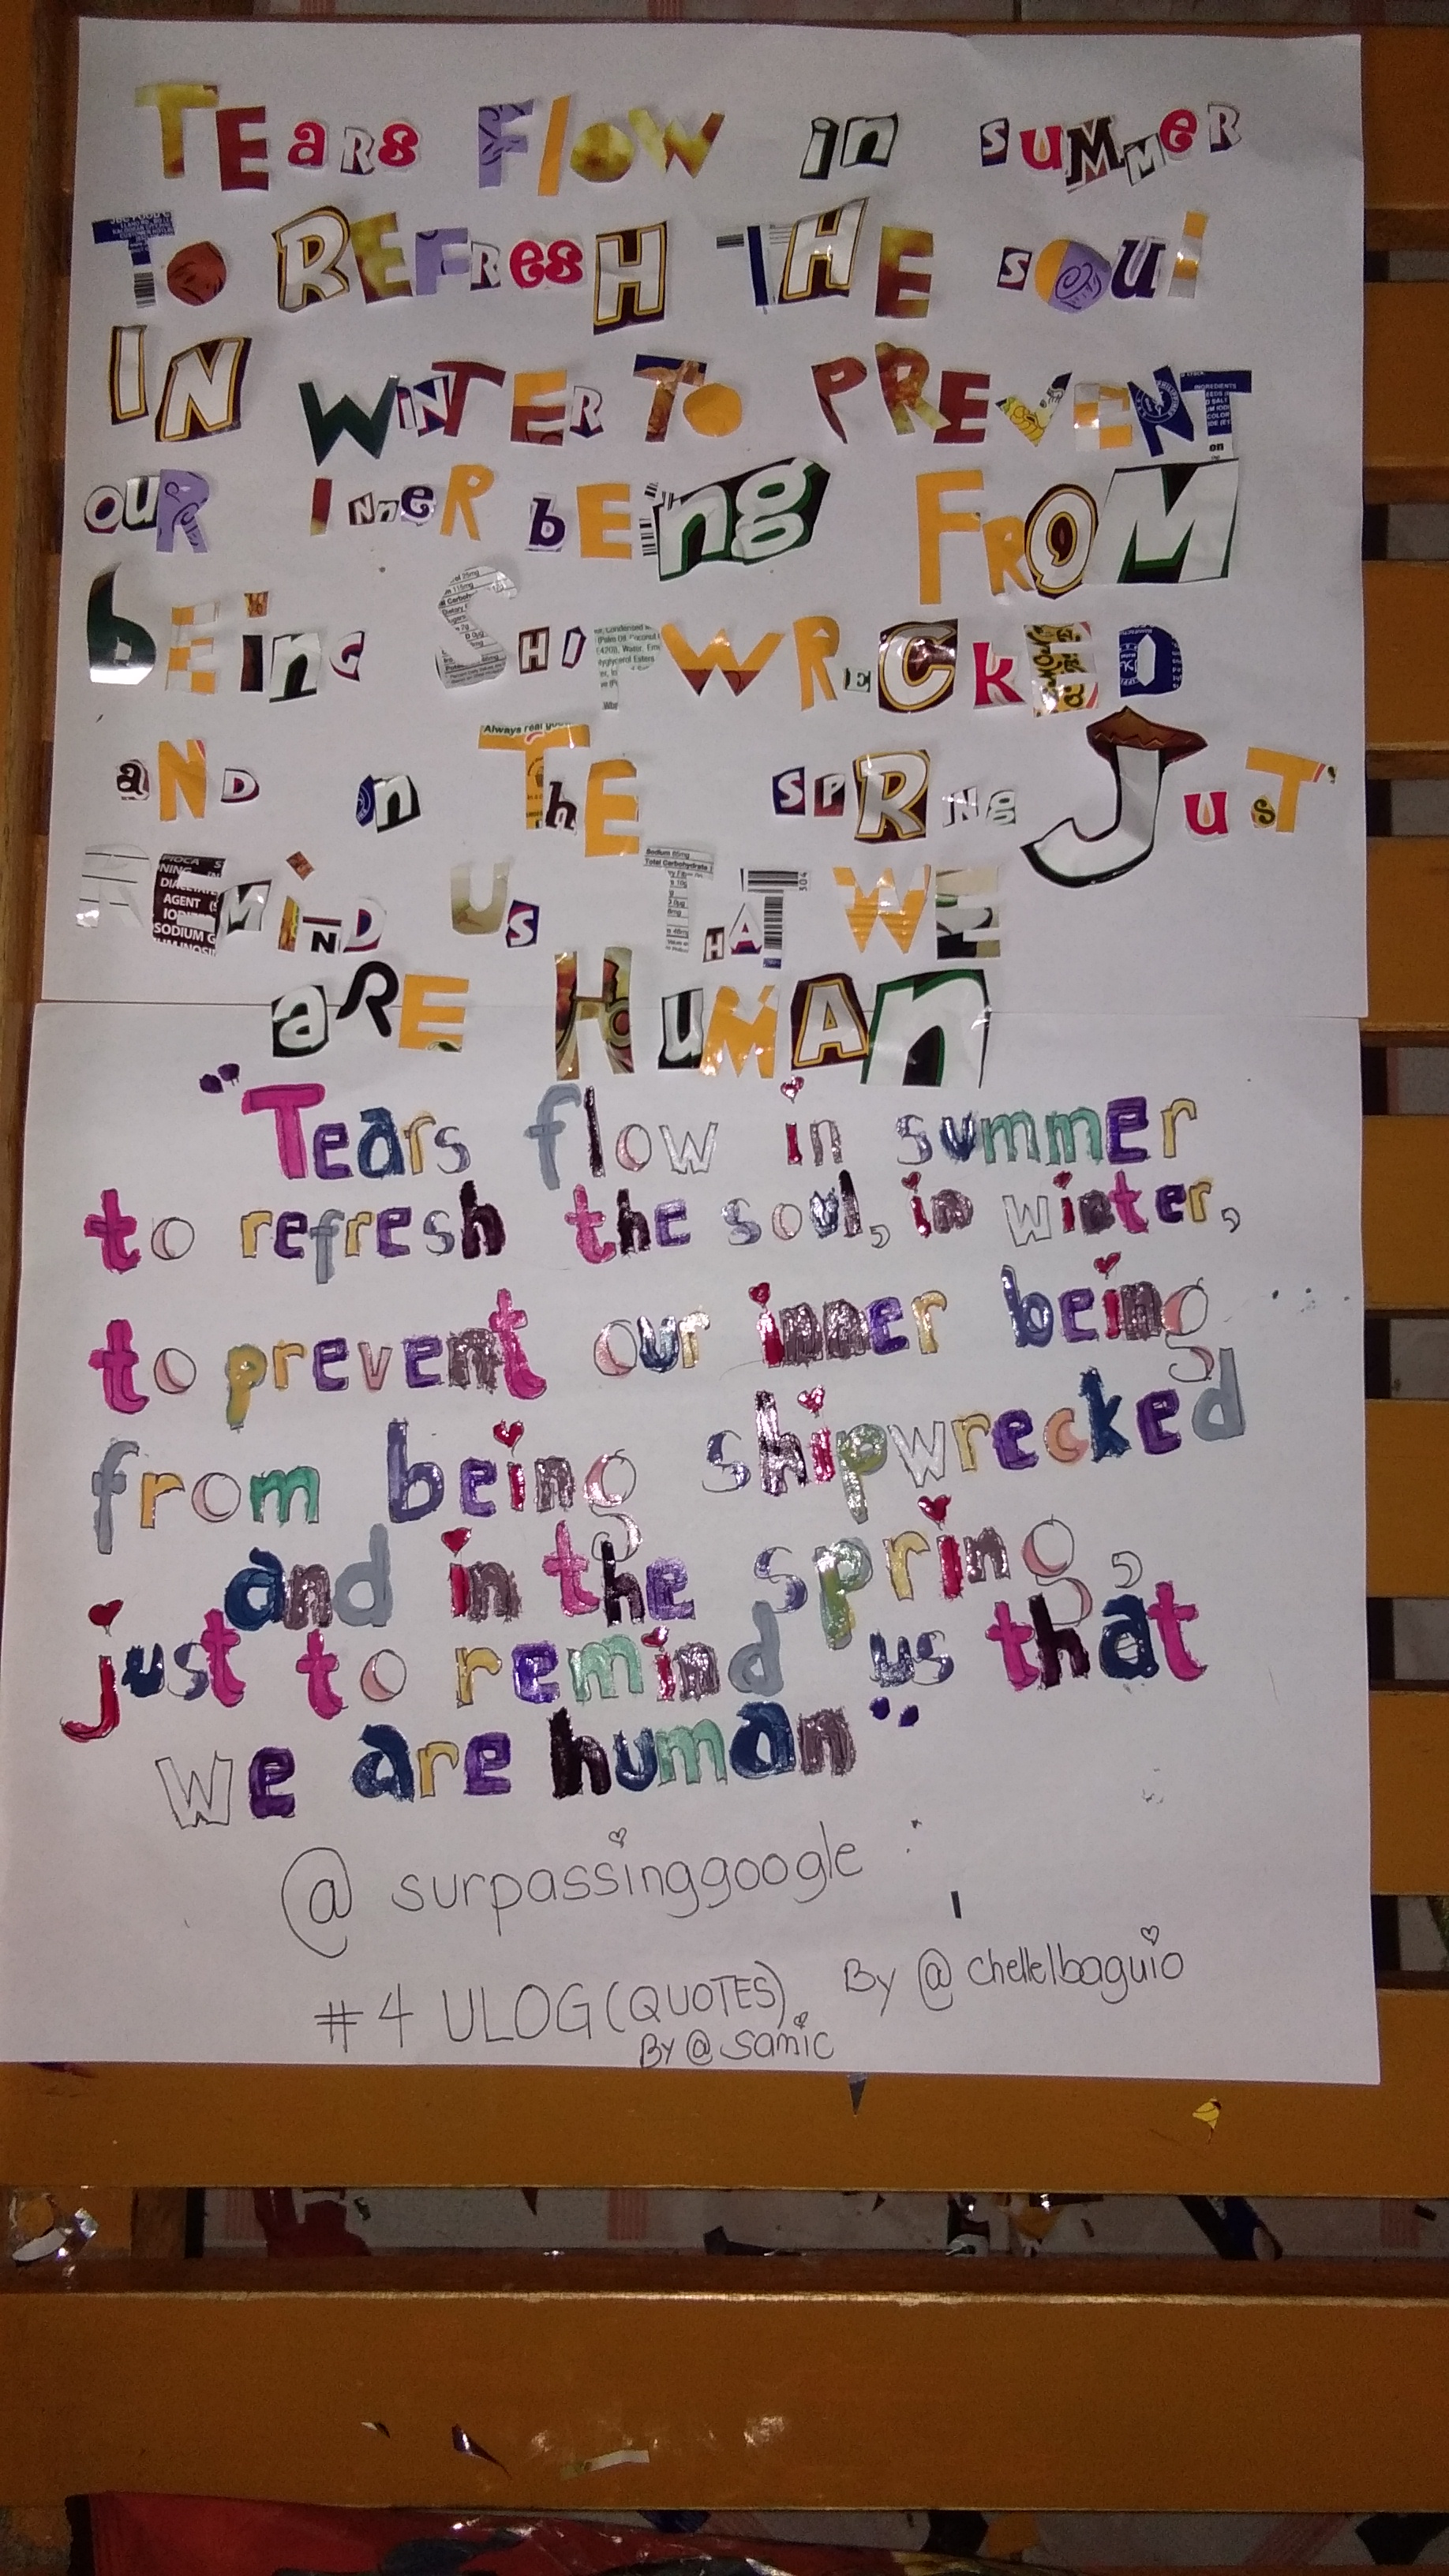 TEaRs Flow in SUMMeR
TO REFResH THE sOUl
IN WiNTER TO PREVENT
OUR INneR bEing FROM
bEinG SHIPWREcKED
aND In ThE SPRiNg JUsT
REMiND Us THAT WE
aRE HUMAn
"Tears flow in summer
to refresh the soul, in winter,
to prevent our inner being
from being shipwrecked
and in the spring,
just to remind us that
we are human"
@surpassinggoogle
#4 ULOG(QUOTES). By @chellelbaguio
By @samic